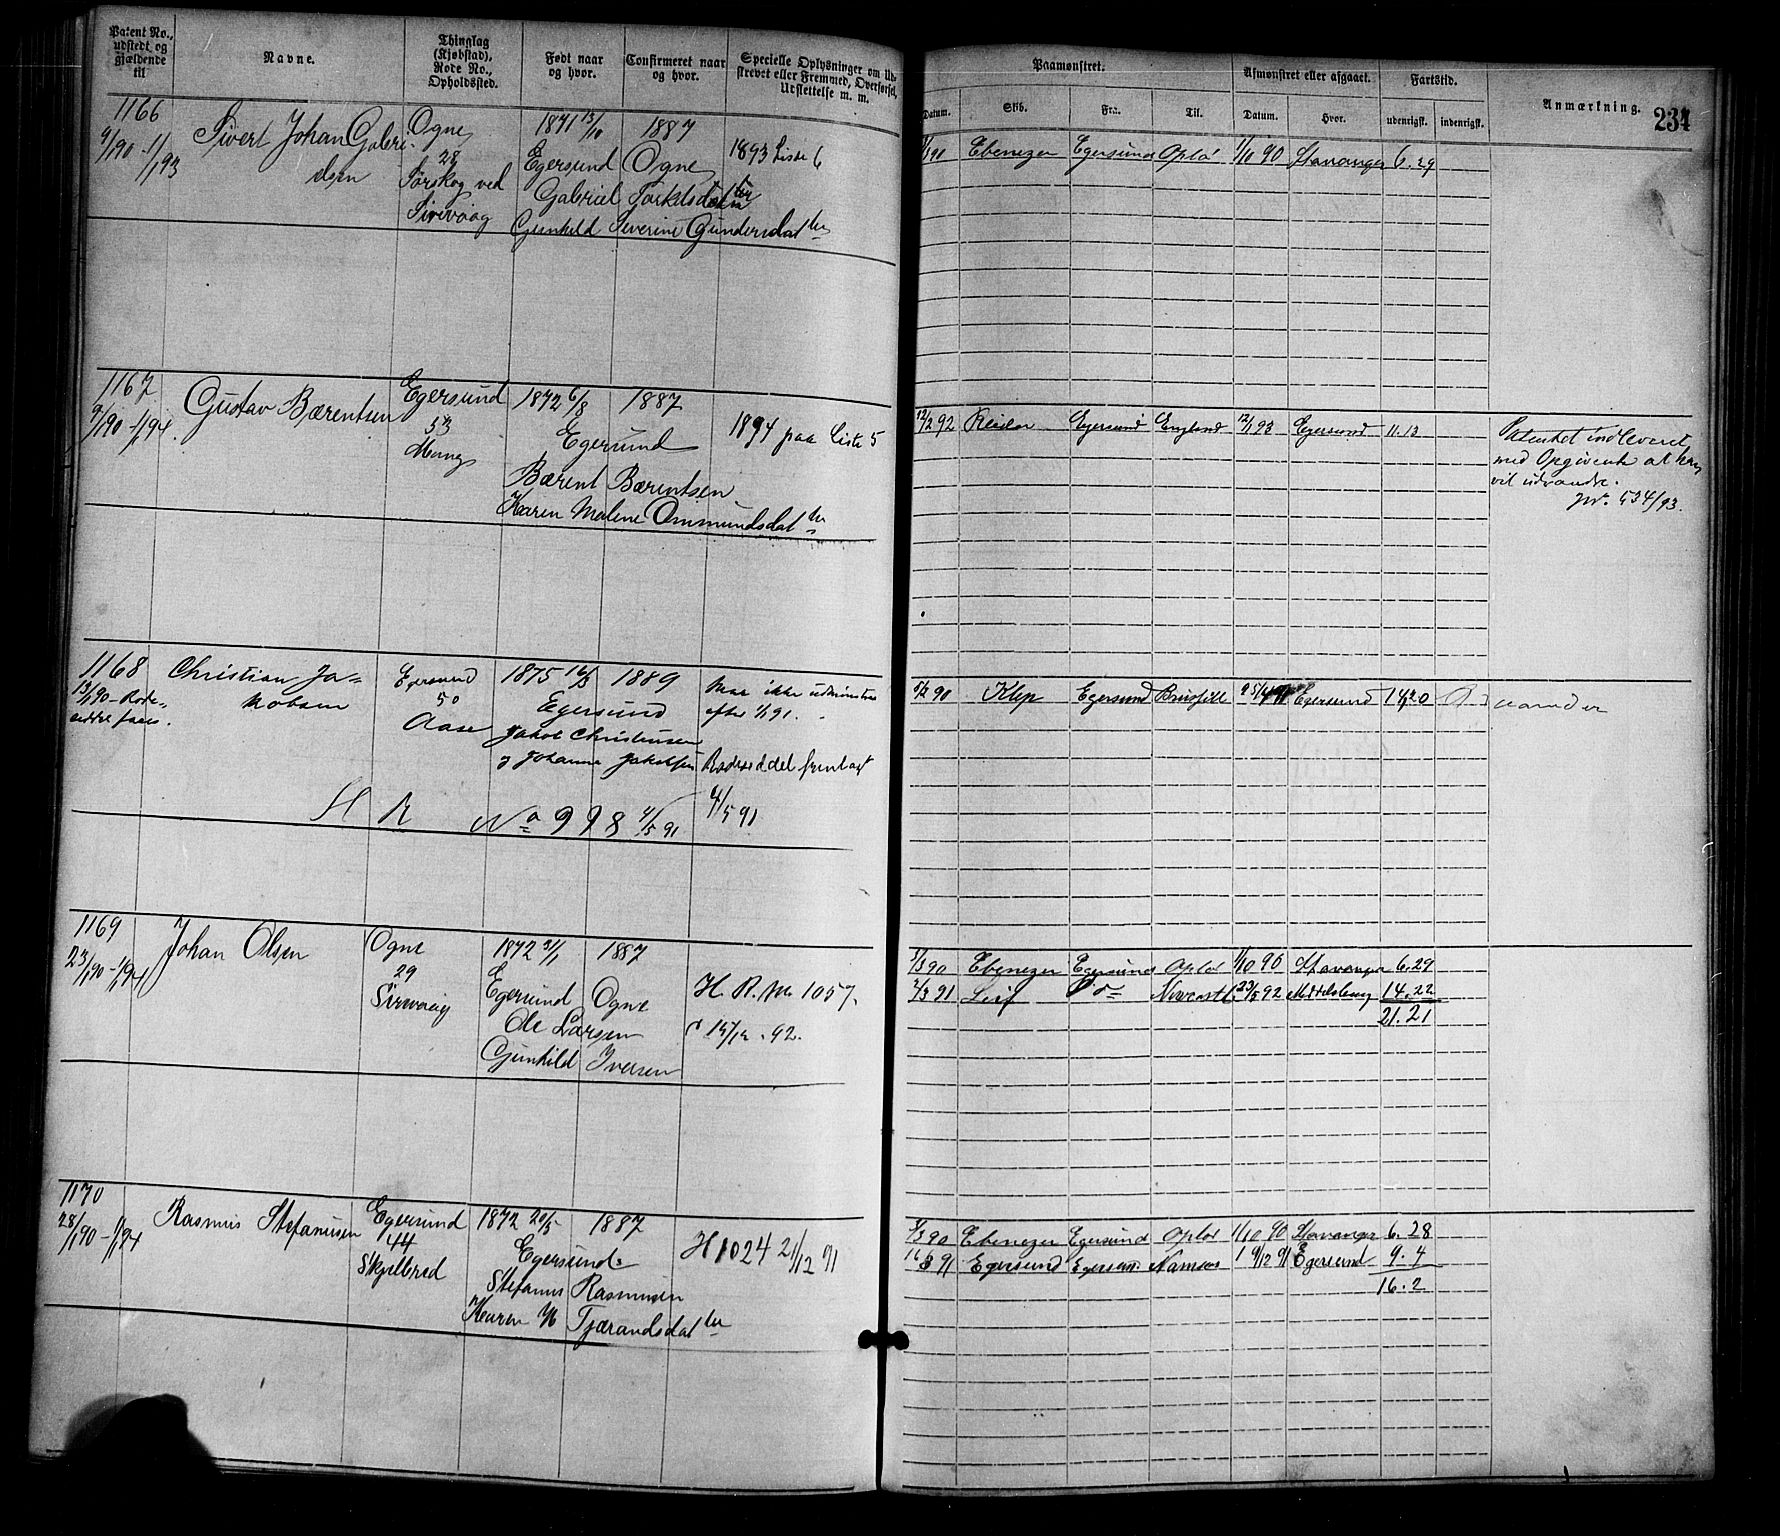 Patent No., udstedt og gjældende til
Navne.
Thinglag (Kjøbstad), Rode No., Opholdssted.
Født naar og hvor.
Confirmeret naar og hvor.
Specielle Oplysninger om Ud-
skrevet eller Fremmed, Overførsel,
Udslettelse m. m.
Paamønstret.
Afmønstret eller afgaaet.
Fartstid.
Anmærkning.
234
Datum. Skib. Fra. Til. Datum. Hvor. udenrigsk. indenrigsk.
1166
9/1 90 - 1/1 93
Sivert Johan Gabri-
elsen
Ogne
28
Sørskog ved
Sirevaag
1871 13/10 1887
Egersund Ogne
Gabriel Torkelsdatter
Gunhild Severine Gundersdatter
1893 Liste 6
90 Ebenezer Egersund Oplø 1/10 90 Stavanger 6.29
1167
9/1 90 - 1/1 94.
Gustav Bærentsen
Egersund
53
Mong
1872 6/8 1887
Egersund
Bærent Bærentsen
Karen Malene Ommundsdatter
1894 paa Liste 5
12/2 92 Reidar Egersund England 12/1 93 Egersund 11.13
Patentet indleveret
med Opgivende at han
vil udvandre.
Jnr. 534/93.
1168
13/1 90 - Rode-
seddel faaes.
Christian Ja-
kobsen
Egersund
50
Aase
1875 16/3 1889
Egersund
Jakob Christensen
og Johanne Jakobsen
Maa ikke udmønstres
efter 1/1 91.
Rodeseddel fremlagt
4/5 91
H R No 998 4/5 91
90 Klep Egersund Egersund
1169
23/1 90 - 1/1 94
Johan Olsen
Ogne
29
Sirevaag
1872 31/1 1887
Egersund Ogne
Ole Larsen
Gunhild Iversen
H. R. No 1057.
15/12 . 92.
5/3 90 Ebenezer Egersund Opløi 1/10 90 Stavanger 6.29
2/3 91 Leif do Newcastle 23/5 92 Middelsbrug 14.22
21.21
1170
28/1 90 - 1/1 94
Rasmus Stefanusen
Egersund
44
Skjelbred
1872 20/5 1887
Egersund
Stefanus Rasmusen
Karen M Tjærandsdatter
H 1024 21/12 91
5/3 90 Ebenezer Egersund Opløi 1/10 90 Stavanger 6.28
16/3 91 Egersund Egersund Namsos 19/12 91 Egersund 9.4
16.2